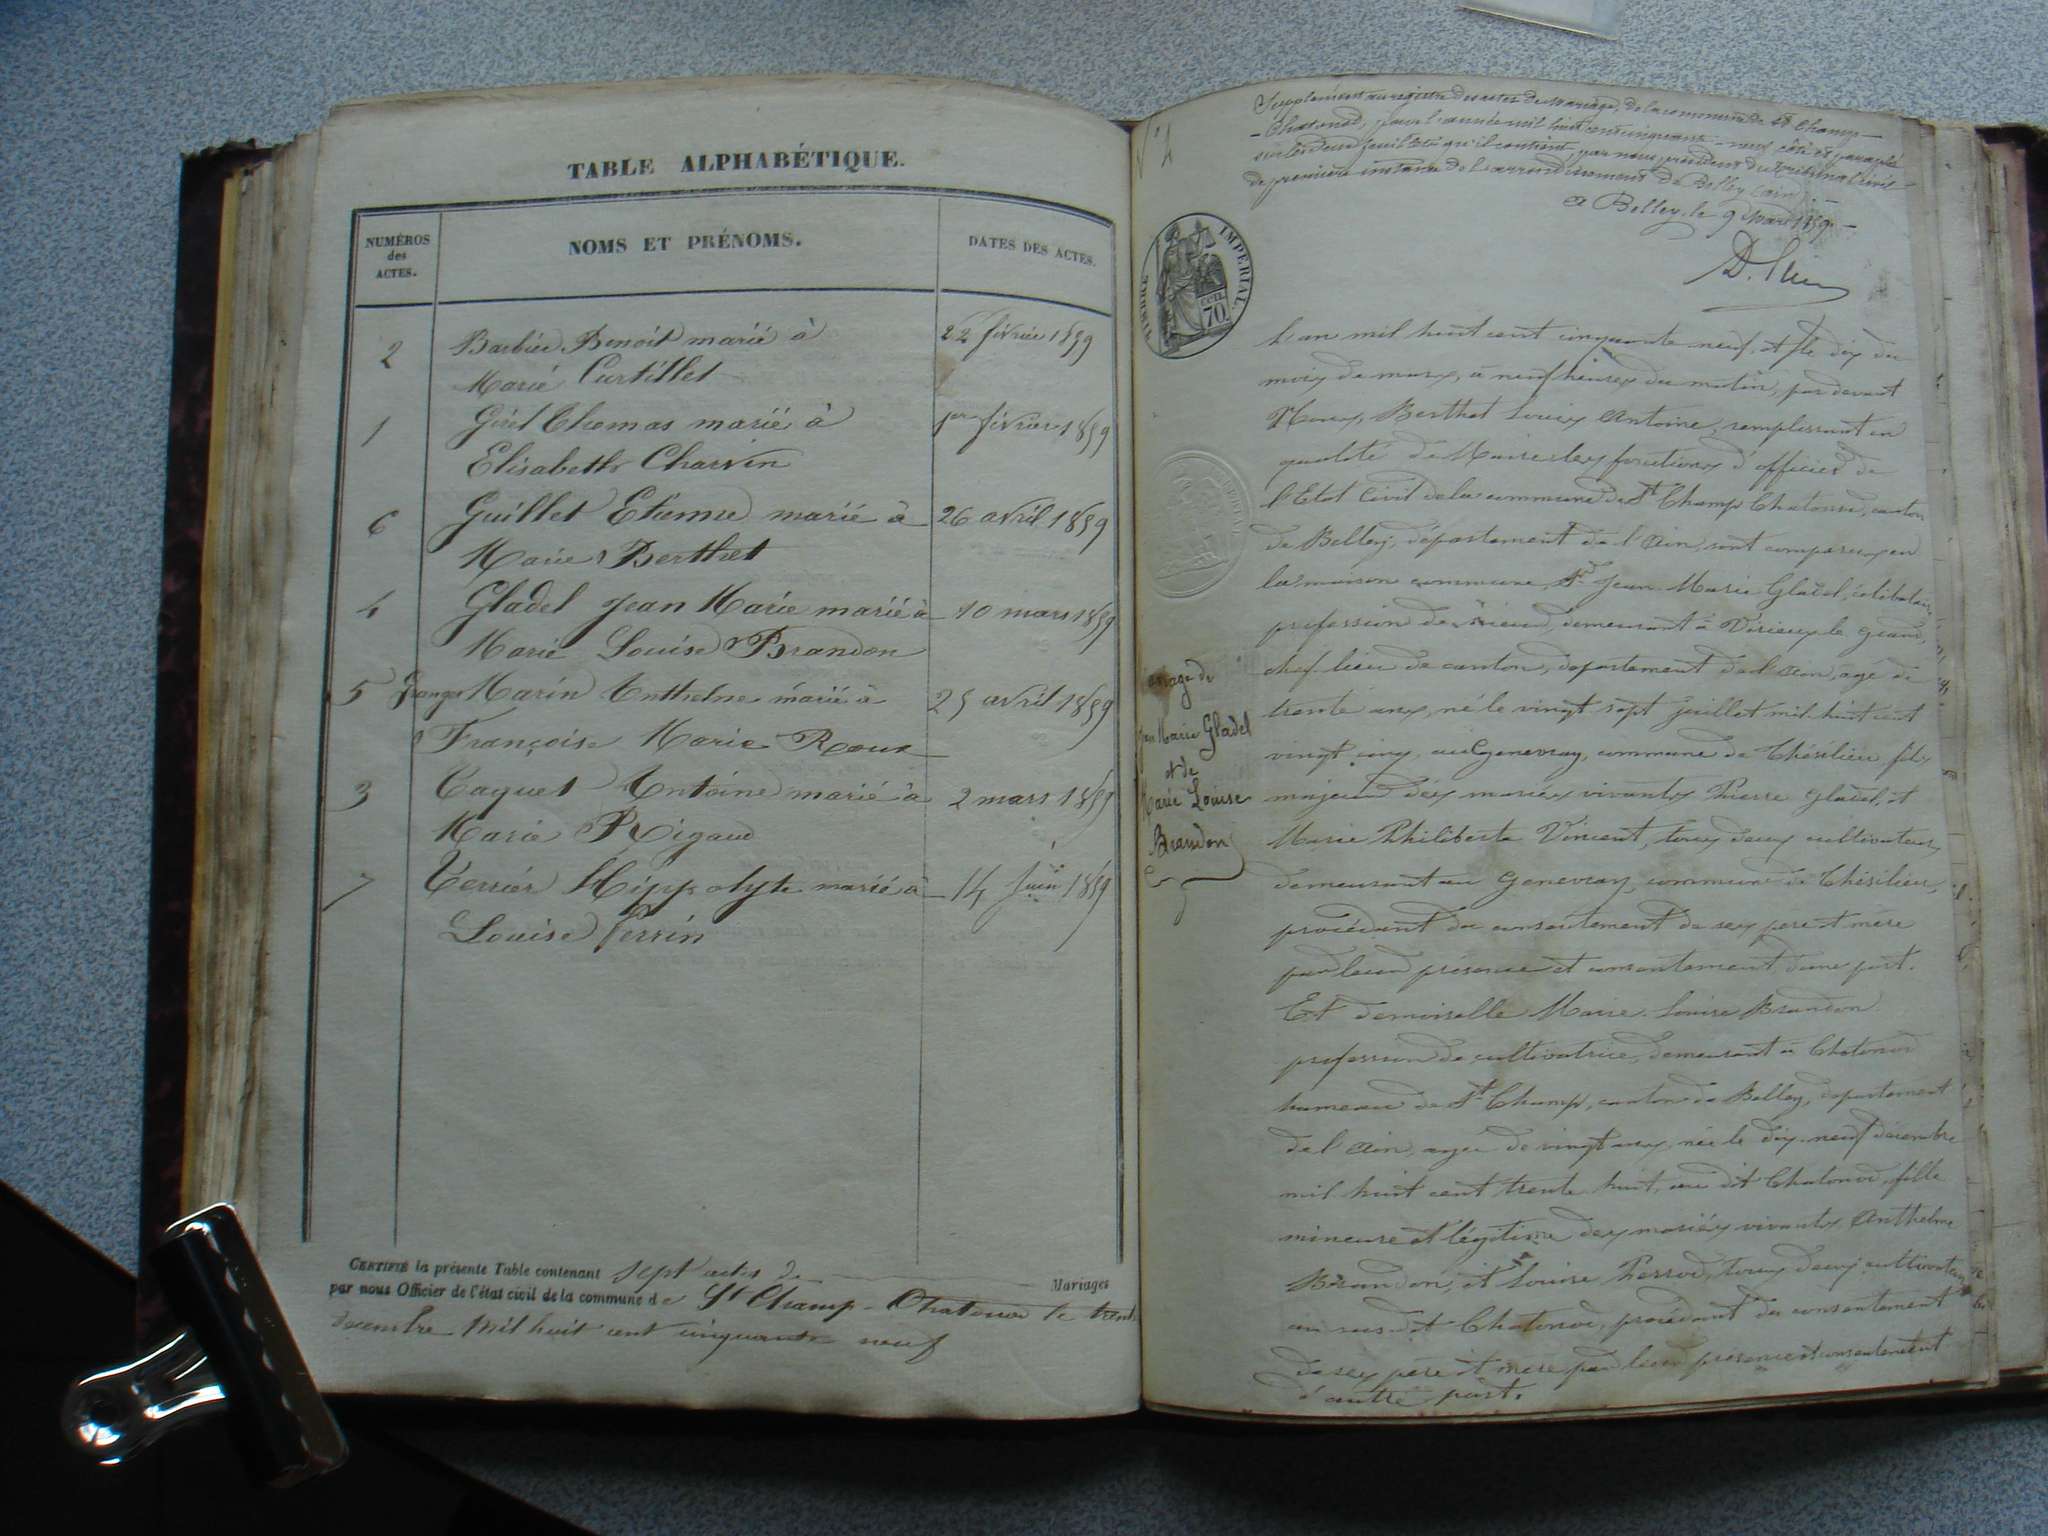 TABLE ALPHABÉTIQUE.
NUMÉROS des ACTES.
NOMS ET PRÉNOMS.
DATES DES ACTES.
2 Barbier Benoit marié à 22 février 1859
Marie Curtillet
1 Thomas marié à 1er février 1859
Elisabeth Charvin
6 Guillet Etienne marié à 26 avril 1859
Marie Berthet
4 Gladel Jean Marie marié à 10 mars 1859
Marie Louise Brandon
5 Marin Anthelme marié à 25 avril 1859
Françoise Marie Roux
3 Caquet Antoine marié à 2 mars 1859
Marie Rigaud
7 Terrier Hippolyte marié à 14 juin 1859
Louise Perrin
CERTIFIÉ la présente Table contenant sept actes de Mariages
par nous Officier de l'état civil de la commune de St Champ-Chatonod le trente
décembre mil huit cent cinquante neuf
Supplément au registre des actes de mariage, de la commune de St Champ-
-Chatonod, pour l'année mil huit cent cinquante-neuf côté et paraphé
sur les deux feuillets qu'il contient, par nous, président du tribunal civil
de première instance de l'arrondissement de Belley (ain)
a Belley, le 9 Mars 1859
N° 4
TIMBRE IMPERIAL.
CEN. 70.
L'an mil huit cent cinquante neuf, et le dix du
mois de mars, à neuf heures du matin, par devant
Nous, Berthet Louis Antoine, remplissant en
qualité de Maire les fonctions d'officier de
l'Etat Civil de la commune de St Champ Chatonod, canton
de Belley, département de l'ain, sont comparus en
la maison commune, Sr Jean Marie Gladel, célibataire
profession de demeurant à Virieux le grand,
chef lieu de canton, département de l'ain, agé de
trente ans, né le vingt sept juillet mil huit cent
vingt cinq, au Genevray, commune de Thésilieu fils
majeur des mariés vivants Pierre Gladel, et
Marie Philiberte Vincent, tous deux cultivateurs
demeurant au Genevray, commune de Thésilieu,
procédant du consentement de ses pere et mère
par leur présence et consentement d'une part.
Et demoiselle Marie Louise Brandon
profession de cultivatrice, demeurant à Chatonod
hameau de St Champ, canton de Belley, département
de l'ain, agée de vingt ans, née le dix-neuf décembre
mil huit cent trente huit, au dit Chatonod, fille
mineure et légitime des mariés vivants Anthelme
Brandon, et Louise Perrod, tous deux cultivateurs
au sus-dit Chatonod, procédant du consentement
de ses pere et mere par leur présence et consentement
d'autre part.
mariage de
Jean Marie Gladel
et de
Marie Louise
Brandon